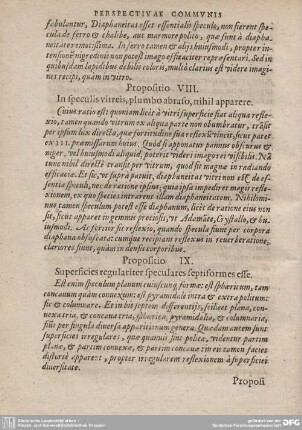 PERSPECTIVAE COMMVNIS
fabulantur, Diaphaneitas esset essentialis speculo, non fierent spe-
cula de ferro & chalibe, aut marmore polito, quae sunt à diapha-
neitate remotissima. In ferro tamen & alijs huiusmodi, propter in-
tensionem nigredinis non potest imago efficaciter repraesentari. Sed in
quibusdam lapidibus debilis coloris, multò clarius est videre imagi-
nes recipi, quàm in vitro.
Propositio VIII.
In speculis vitreis, plumbo abraso, nihil apparere.
Cuius ratio est: quoniam licet à vitri superficie fiat aliqua refle-
xio, tamen quando vitrum ex aliqua parte non obumbratur, transit
per ipsum lux directa, quae fortitudine sua reflexā vincit, sicut patet
ex III. praemissarum huius. Quod si apponatur pannus obscurus et
niger, vel huiusmodi aliquid, poterit videri imago rei visibilis.
efficacia. Et sic, ut supra patuit, diaphaneitas vitri non est de es-
sentia speculi, nec de ratione ipsius; quia ipsa impediret magis refle-
xionem, ex quo species intrarent illam diaphaneitatem. Nihilomi-
nus tamen speculum potest esse diaphanum, licet de ratione eius non
sit, sicut apparet in gemmis preciosis, vt Adamāte, Crystallo, & hu-
iusmodi. Ac fortior fit reflexio, quando specula sunt per corpora
diaphana obscurata: cumque recipiant reflexum in reuerberatione,
clariores sunt, quàm in densis corporibus.
Propositio IX.
Superficies regulariter speculares septiformes esse.
Est enim speculum planum cuiuscunque formae: est sphaericum, tam
concauum quàm conuexum: est pyramidale intra & extra politum:
sic & columnare. Et in his septem differentijs, scilicet plana, con-
uexa tria, & concaua tria, sphaerica, pyramidalia, & columnaria,
superficies irregulares, quae quamuis sint politae, videntur partim
plana, & partim conuexa, & partim concaua: in eis tamen facies
distorta apparet, propter irregularem reflexionem à superficiei
diuersitate.
Proposi